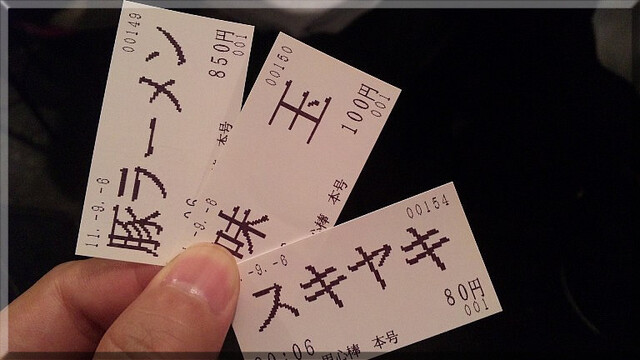 00149
豚ラーメン
850円
001
11.-9.-6
本号
00150
味玉
100円
001
-9.-6
心棒 本号
00154
スキヤキ
80円
001
-9.-6
20:06 用心棒 本号